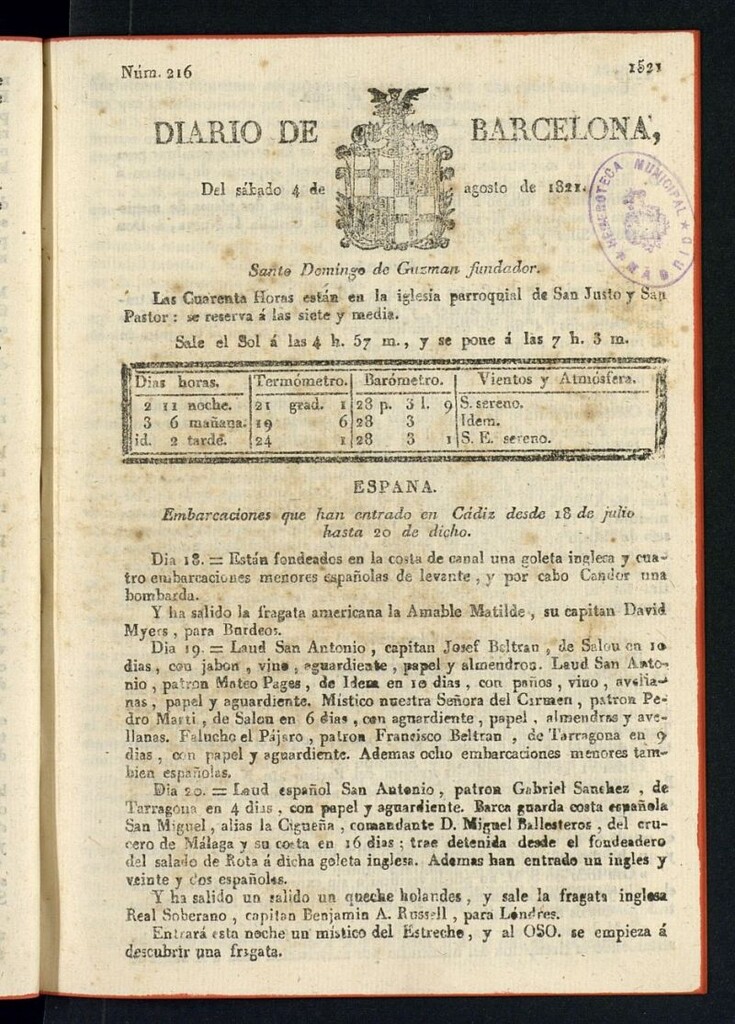 Núm. 216 1521
DIARIO DE BARCELONA,
Del sábado 4 de agosto de 1821.
HEMEROTECA MUNICIPAL * MADRID *
Santo Domingo de Guzman fundador.
Las Cuarenta Horas están en la iglesia parroquial de San Justo y San
Pastor : se reserva á las siete y media.
Sale el Sol á las 4 h. 57 m., y se pone á las 7 h. 3 m.
Dias horas. Termómetro. Barómetro. Vientos y Atmósfera.
2 11 noche. 21 grad. 1 28 p. 3 l. 9 S. sereno.
3 6 mañana. 19 6 28 3 Idem.
id. 2 tarde. 24 1 28 3 1 S. E. sereno.
ESPANA.
Embarcaciones que han entrado en Cádiz desde 18 de julio
hasta 20 de dicho.
Dia 18. = Están fondeados en la costa de canal una goleta inglesa y cua-
tro embarcaciones menores españolas de levante , y por cabo Candor una
bombarda.
Y ha salido la fragata americana la Amable Matilde , su capitan David
Myers , para Burdeos.
Dia 19. = Laud San Antonio , capitan Josef Beltran , de Salou en 10
dias , con jabon , vino , aguardiente , papel y almendros. Laud San Anto-
nio , patron Mateo Pages , de Idem en 10 dias , con paños , vino , avella-
nas , papel y aguardiente. Místico nuestra Señora del Carmen , patron Pe-
dro Marti , de Salou en 6 dias , con aguardiente , papel , almendras y ave-
llanas. Falucho el Pájaro , patron Francisco Beltran , de Tarragona en 9
dias , con papel y aguardiente. Ademas ocho embarcaciones menores tam-
bien españolas.
Dia 20. = Laud español San Antonio , patron Gabriel Sanchez , de
Tarragona en 4 dias , con papel y aguardiente. Barca guarda costa española
San Miguel , alias la Cigueña , comandante D. Miguel Ballesteros , del cru-
cero de Málaga y su costa en 16 dias ; trae detenida desde el fondeadero
del salado de Rota á dicha goleta inglesa. Ademas han entrado un ingles y
veinte y dos españoles.
Y ha salido un salido un queche holandes , y sale la fragata inglesa
Real Soberano , capitan Benjamin A. Russell , para Lóndres.
Entrará esta noche un místico del Estrecho , y al OSO. se empieza á
descubrir una fragata.